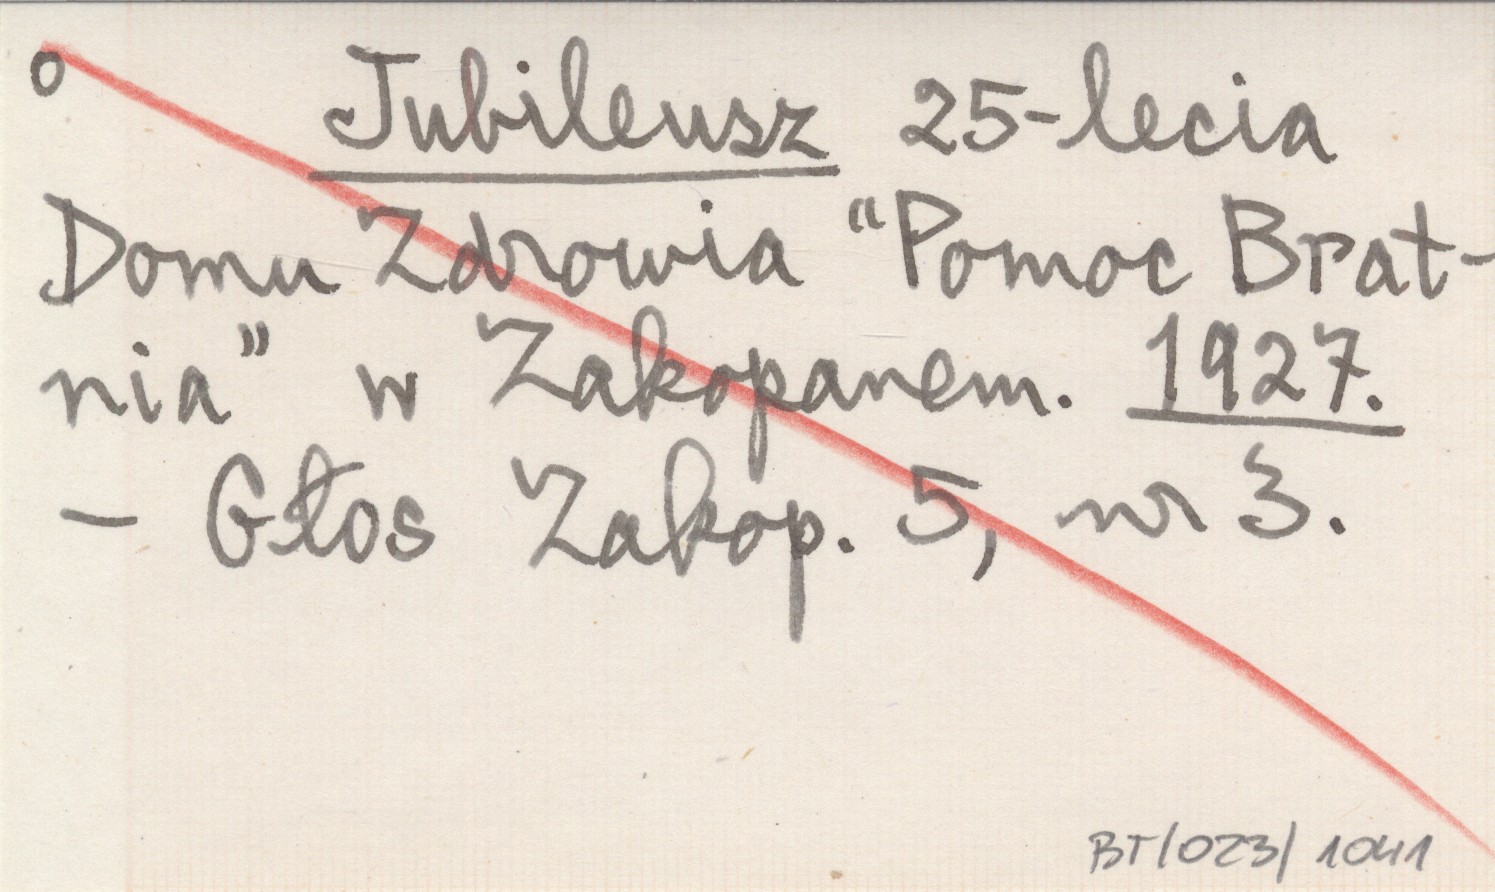 o Jubileusz 25-lecia
Domu Zdrowia "Pomoc Brat-
nia" w Zakopanem. 1927.
- Głos Zakop. 5, nr 3.
BT/023/1041